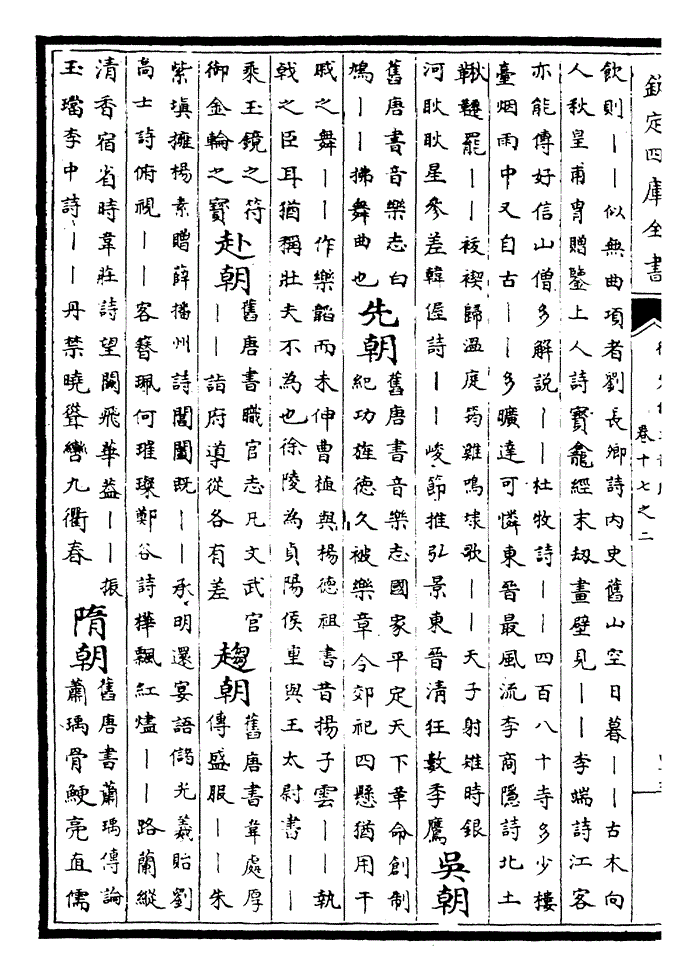 欽定四庫全書
卷十七之二
飲則丨丨似無曲項者劉長卿詩內史舊山空日暮丨丨古木向
人秋皇甫曾贈鑒上人詩寶龕經末劫畫壁見丨丨李端詩江客
亦能傳好信山僧多解說丨丨杜牧詩丨丨四百八十寺多少樓
臺烟雨中又自古丨丨多曠達可憐東晉最風流李商隱詩北土
鞦韆罷丨丨祓禊歸溫庭筠雞鳴埭歌丨丨天子射雉時銀
河耿耿星參差韓偓詩丨丨峻節推弘景東晉清狂數季鷹
吳朝
舊唐書音樂志白
鳩丨丨拂舞曲也
先朝
舊唐書音樂志國家平定天下革命創制
紀功旌德久被樂章今郊祀四懸猶用干
戚之舞丨丨作樂韜而未伸曹植與楊德祖書昔揚子雲丨丨執
戟之臣耳猶稱壯夫不為也徐陵為貞陽侯重與王太尉書丨丨
乘玉鏡之符
御金輪之寶
赴朝
舊唐書職官志凡文武官
丨丨詣府導從各有差
趨朝
舊唐書韋處厚
傳盛服丨丨朱
紫填擁楊素贈薛播州詩閶闔既丨丨承明還宴語儲光羲貽劉
高士詩俯視丨丨客簪珮何璀璨鄭谷詩樺飄紅燼丨丨路蘭縱
清香宿省時韋莊詩望闕飛華蓋丨丨振
玉璫李中詩丨丨丹禁曉聳轡九衢春
隋朝
舊唐書蕭瑀傳論
蕭瑀骨鯁亮直儒